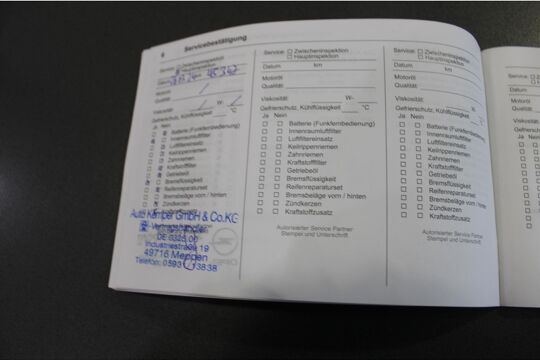 6 Servicebestätigung
Service: Zwischeninspektion
Hauptinspektion
Datum km
Motoröl
Qualität
Viskosität: W-
Gefrierschutz, Kühlflüssigkeit °C
Ja Nein
Batterie (Funkfernbedienung)
Innenraumluftfilter
Luftfiltereinsatz
Keilrippenriemen
Zahnriemen
Kraftstofffilter
Getriebeöl
Bremsflüssigkeit
Reifenreparaturset
Bremsbeläge vorn / hinten
Zündkerzen
Auto Kämper GmbH & Co.KG
Industriestraße 19
49716 Meppen
Telefon: 0593 13838
Service: Zwischeninspektion
Hauptinspektion
Datum km
Motoröl
Qualität:
Viskosität: W-
Gefrierschutz, Kühlflüssigkeit °C
Ja Nein
Batterie (Funkfernbedienung)
Innenraumluftfilter
Luftfiltereinsatz
Keilrippenriemen
Zahnriemen
Kraftstofffilter
Getriebeöl
Bremsflüssigkeit
Reifenreparaturset
Bremsbeläge vorn / hinten
Zündkerzen
Kraftstoffzusatz
Autorisierter Service Partner
Stempel und Unterschrift
Service: Zwischeninspektion
Hauptinspektion
Datum km
Motoröl
Qualität:
Viskosität: W-
Gefrierschutz, Kühlflüssigkeit °C
Ja Nein
Batterie (Funkfernbedienung)
Innenraumluftfilter
Luftfiltereinsatz
Keilrippenriemen
Zahnriemen
Kraftstofffilter
Getriebeöl
Bremsflüssigkeit
Reifenreparaturset
Bremsbeläge vorn / hinten
Zündkerzen
Kraftstoffzusatz
Autorisierter Service Partner
Stempel und Unterschrift
Service:
Datum
Motoröl
Qualität:
Viskosität:
Ja Nein